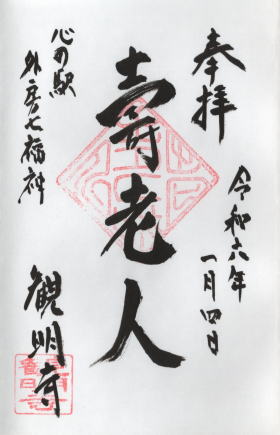 奉拝
令和六年
一月四日
壽老人
心の駅
外房七福神
観明寺